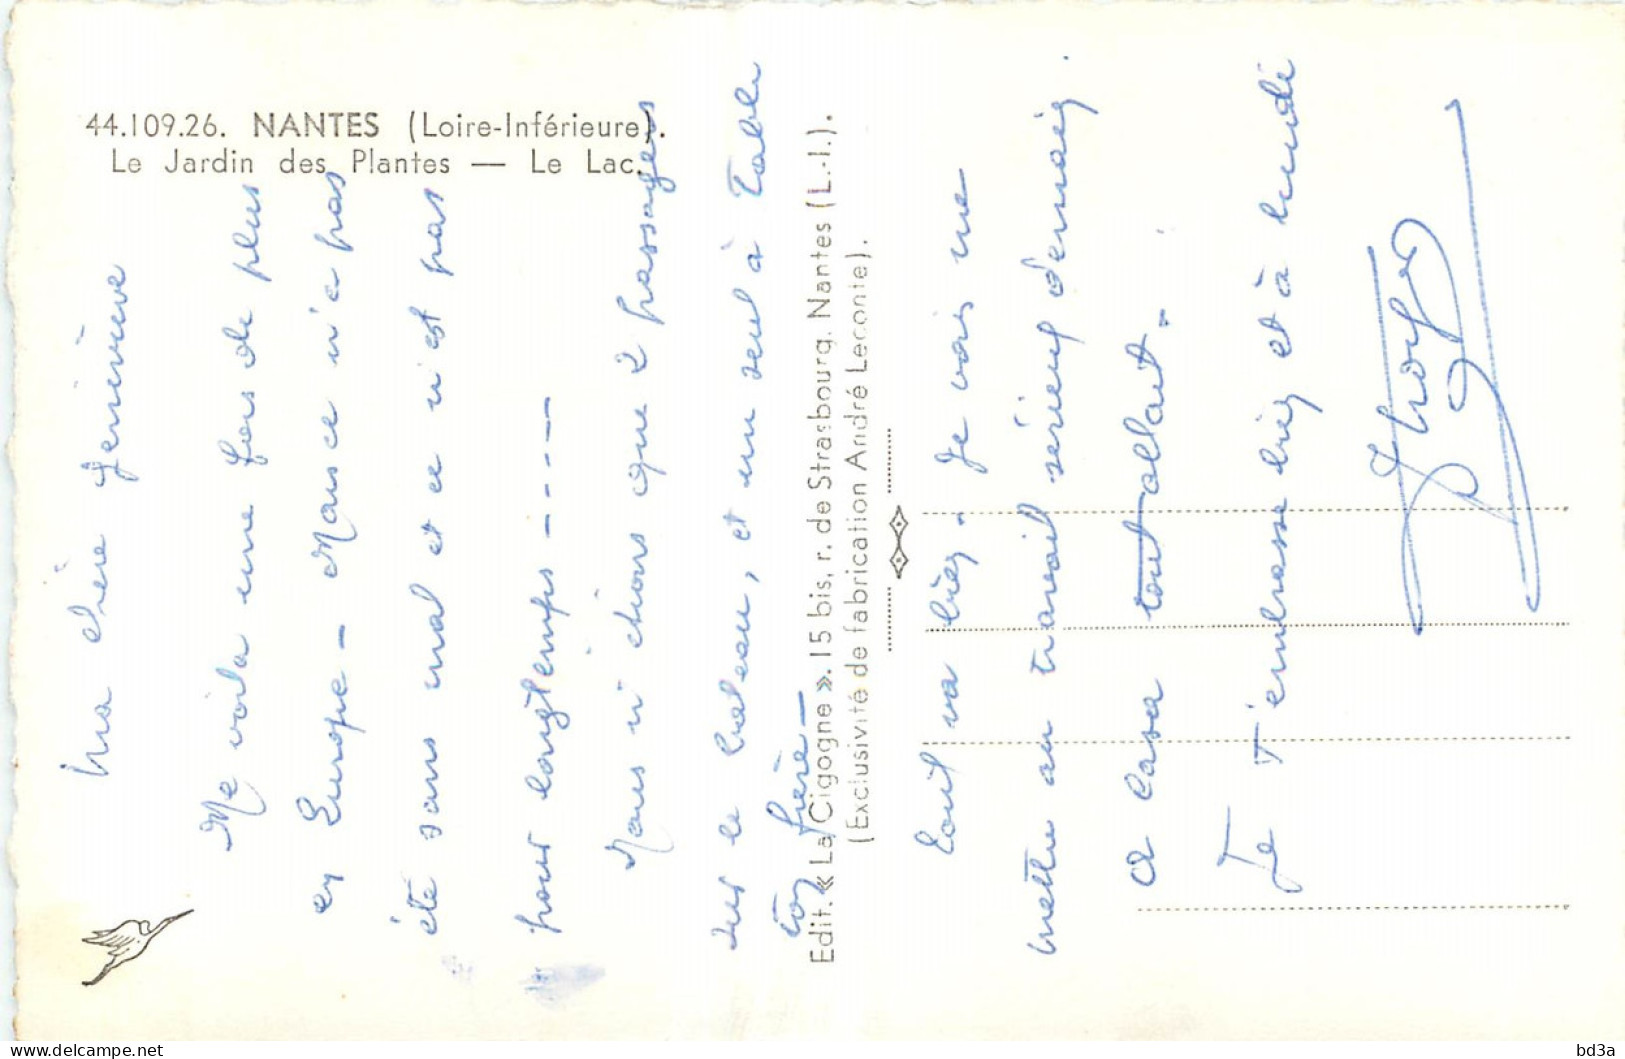 44.109.26. NANTES (Loire-Inférieure).
Le Jardin des Plantes — Le Lac.
Ma chère Geneviève
Me voila une fois de plus
en Europe — Mais ce n'a pas
été sans mal et ce n'est pas
pour longtemps - - - - -
Nous n'étions que 2 passagers
sur le bateau, et un seul à Table
ton frère —
Edit. « La Cigogne ». 15 bis, r. de Strasbourg. Nantes (L.-I.).
(Exclusivité de fabrication André Leconte).
Tout va bien. Je vais me
mettre au travail sérieux demain.
A Casa tout allait.
Je T'embrasse bien et à lundi
bd3a